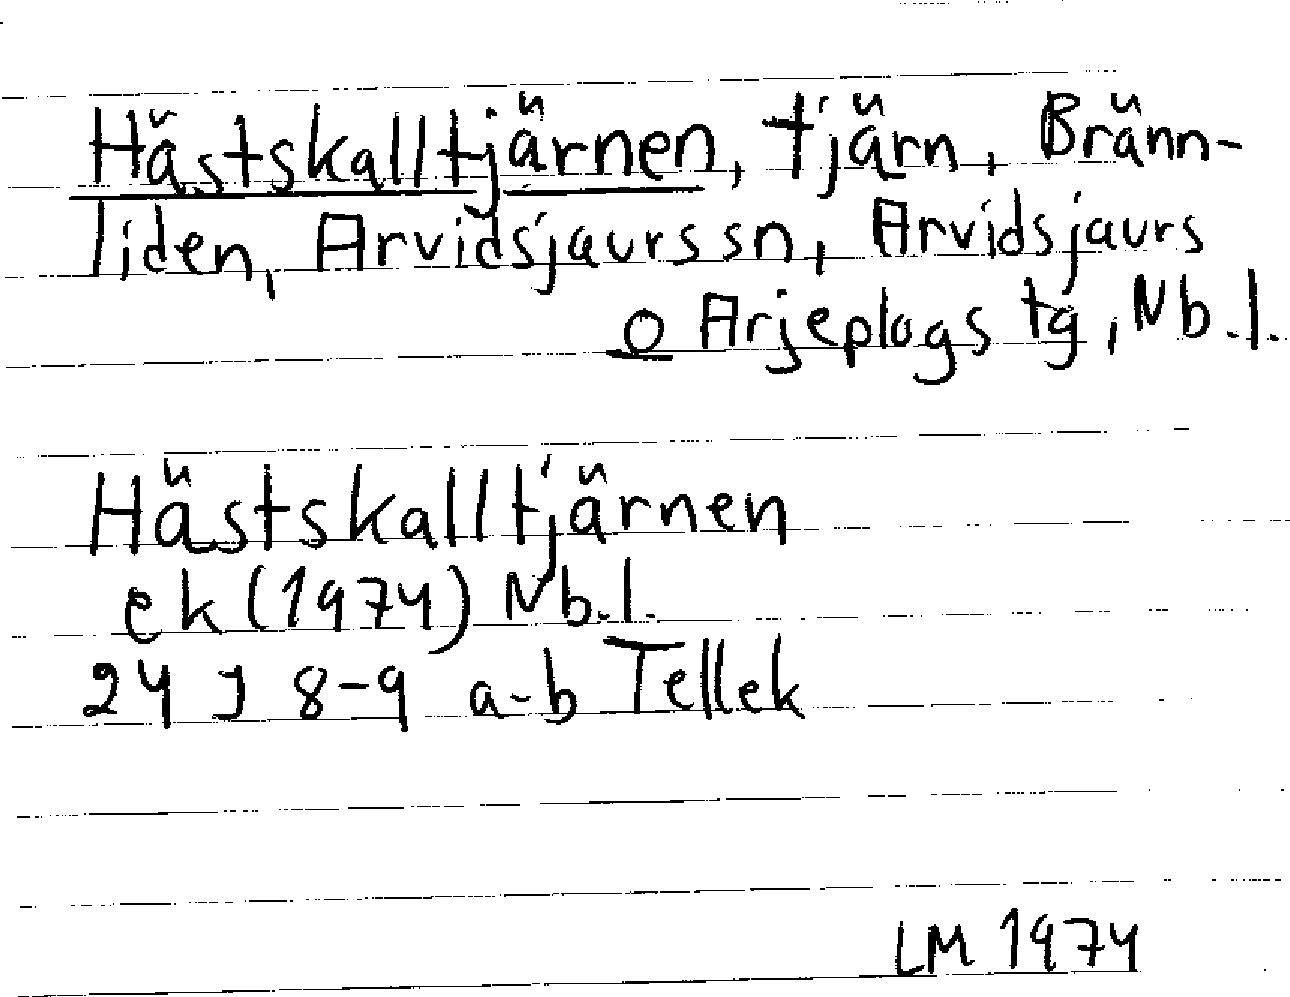 Hästskalltjärnen, tjärn, Bränn-
liden, Arvidsjaurs sn, Arvidsjaurs
o Arjeplogs tg, Nb.l.
Hästskalltjärnen
ek (1974) Nb.l.
24 J 8-9 a-b Tellek
LM 1974